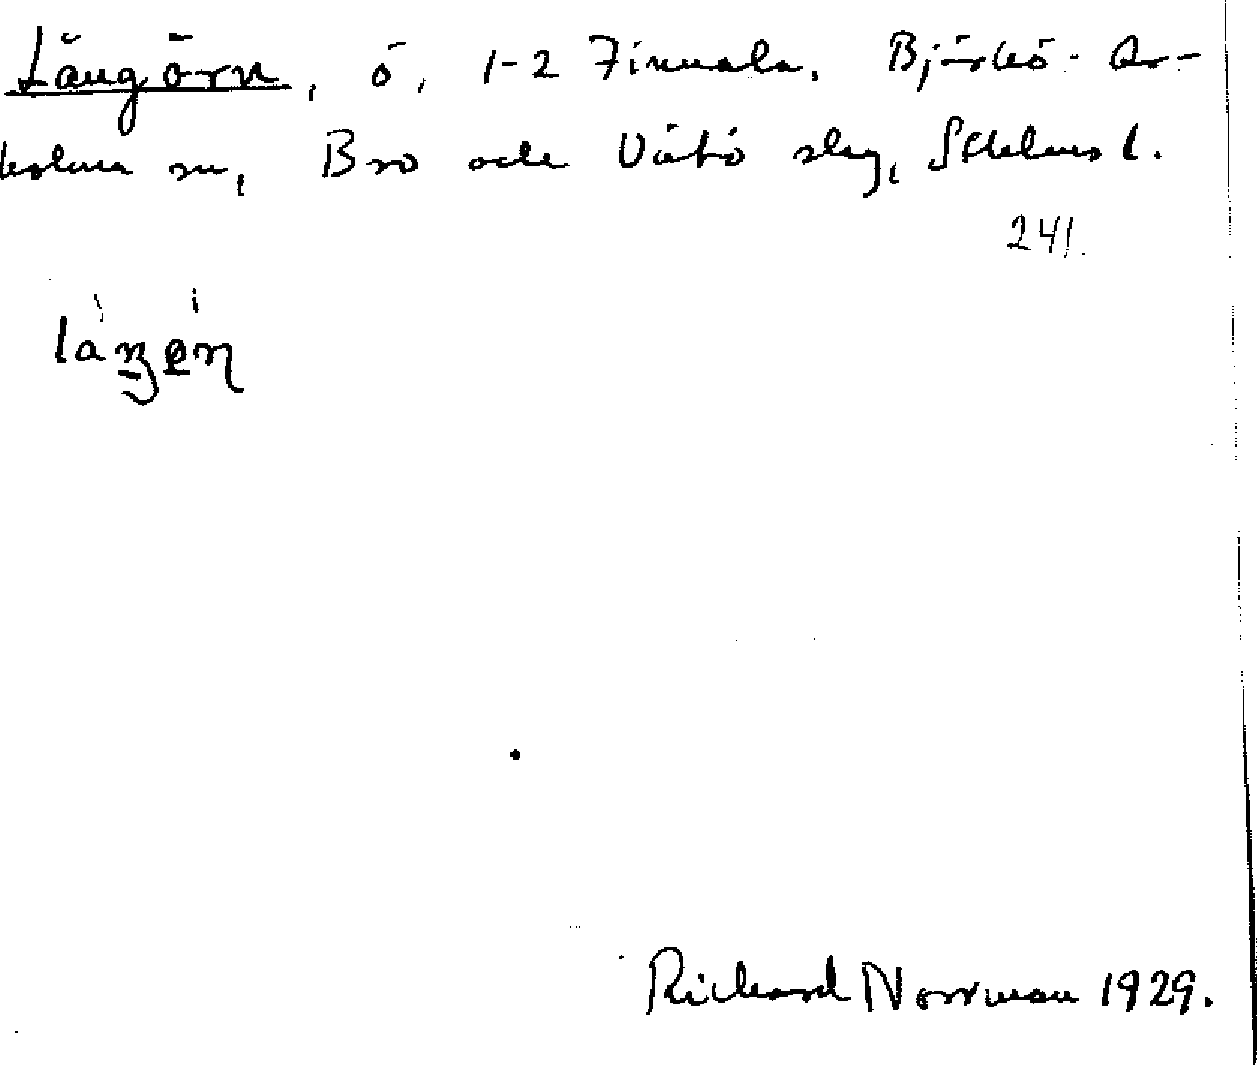 Långörn, ö, 1-2 Finnala. Björkö-Ar-
holma sn, Bro och Vätö slg, Sthlms l.
241.
Richard Norrman 1929.